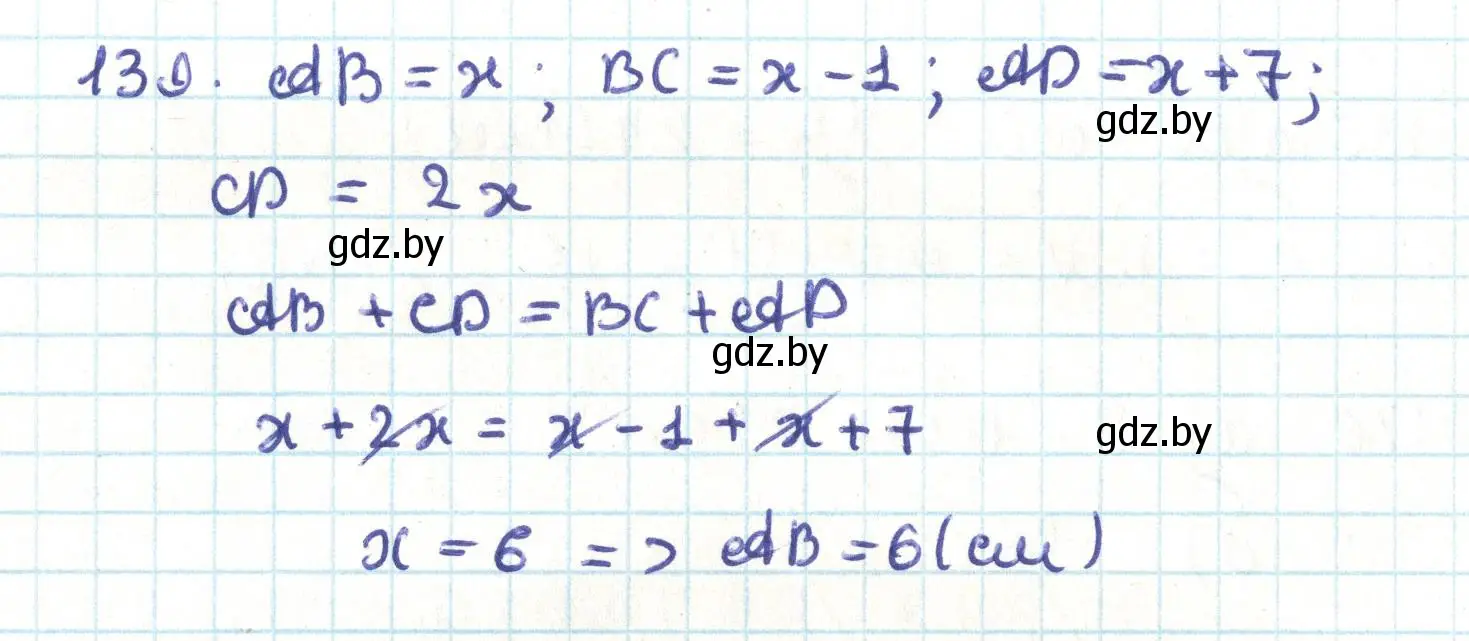 139. AB = x; BC = x - 1; AD = x + 7;
gdz.by
CD = 2x
gdz.by
AB + CD = BC + AD
gdz.by
x + 2x = x - 1 + x + 7
gdz.by
x = 6 => AB = 6 (см)